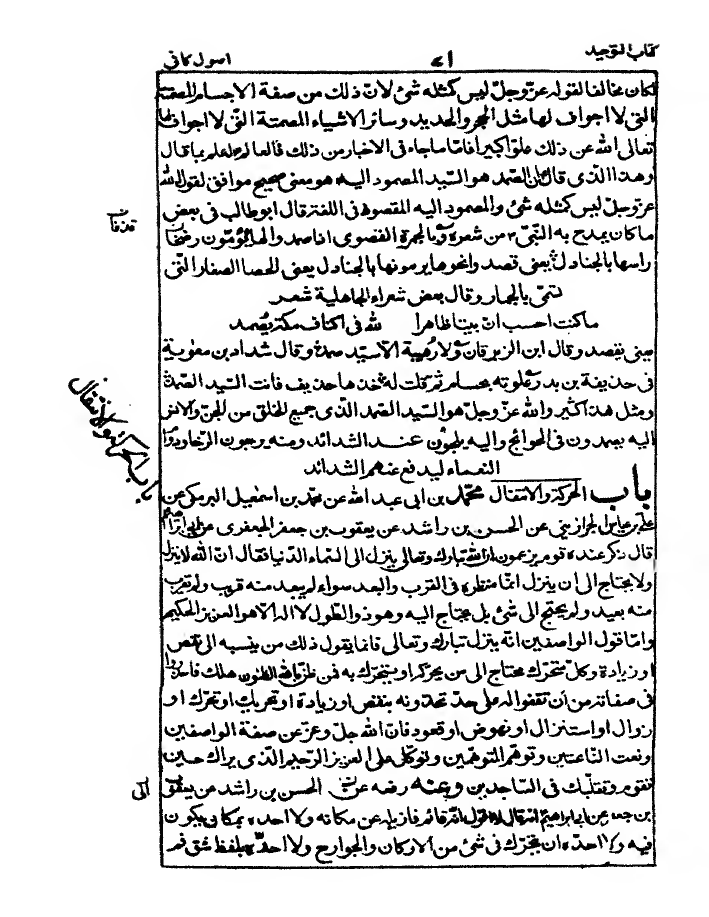 كتاب التوحيد
٧١
اصول كافى
لكان مخالفا لقوله عزّ وجلّ ليس كمثله شئ لانّ ذلك من صفة الاجسام المصمتة
التى لا اجواف لها مثل الحجر والحديد وسائر الاشياء المصمتة التى لا اجواف لها
تعالى الله عن ذلك علوّا كبيرا فامّا ما جاء فى الاخبار من ذلك فالعالم اعلم بما قال
وهذا الذى قال ان الصمد هو السّيد المصمود اليه هو معنى صحيح موافق لقول الله
عزّ وجلّ ليس كمثله شئ والمصمود اليه المقصود فى اللغة قال ابو طالب فى بعض
ما كان يمدح به النبىّ ص من شعره وبالجمرة القصوى اذا صمدوا لها يؤمّون رضخا
راسها بالجنادل يعنى قصدوا نحوها يرمونها بالجنادل يعنى الحصا الصغار التى
تسمّى بالجمار وقال بعض شعراء الجاهلية شعر
ما كنت احسب انّ بيتا ظاهرا لله فى اكناف مكة يُصمد
يعنى يقصد وقال ابن الزبرقان ولا رهيبة الّا سيّد صمد وقال شداد بن معوية
فى حذيفة بن بدر علوته بحسام ثم قلت له خذها حذيف فانت السيد الصمد
ومثل هذا كثير والله عزّ وجلّ هو السّيد الصمد الذى جميع الخلق من الجنّ والانس
اليه يصمدون فى الحوائج واليه يلجؤن عند الشدائد ومنه يرجون الرّخاء ودوام
النعماء ليدفع عنهم الشدائد
باب الحركة والانتقال محمّد بن ابى عبد الله عن محمّد بن اسمعيل البرمكى عن
علىّ بن عباس الخراذينى عن الحسن بن راشد عن يعقوب بن جعفر الجعفرى عن ابى ابراهيم
قال ذكر عنده قوم يزعمون ان الله تبارك وتعالى ينزل الى السّماء الدّنيا فقال انّ الله لا ينزل
ولا يحتاج الى ان ينزل انّما منظره فى القرب والبعد سواء لم يبعد منه قريب ولم يقرب
منه بعيد ولم يحتج الى شئ بل يحتاج اليه وهو ذو الطّول لا اله الّا هو العزيز الحكيم
وامّا قول الواصفين انّه ينزل تبارك وتعالى فانّما يقول ذلك من ينسبه الى نقص
او زيادة وكلّ متحرّك محتاج الى من يحرّكه او يتحرّك به فمن ظنّ بالله الظنون هلك فاحذروا
فى صفاته من ان تقفوا له على حدّ تحدّونه بنقص او زيادة او تحريك او تحرّك او
زوال او استنزال او نهوض او قعود فانّ الله جلّ وعزّ عن صفة الواصفين
ونعت النّاعتين وتوهّم المتوهّمين وتوكّل على العزيز الرّحيم الّذى يراك حين
تقوم وتقلّبك فى السّاجدين وعنه رفعه عن الحسن بن راشد عن يعقوب
بن جعفر عن ابى ابراهيم انّه قال لا اقول انّه قائم فازيله عن مكانه ولا احدّه بمكان يكون
فيه ولا احدّه ان يتحرّك فى شئ من الاركان والجوارح ولا احدّه بلفظ شق فم
باب الحركة والانتقال